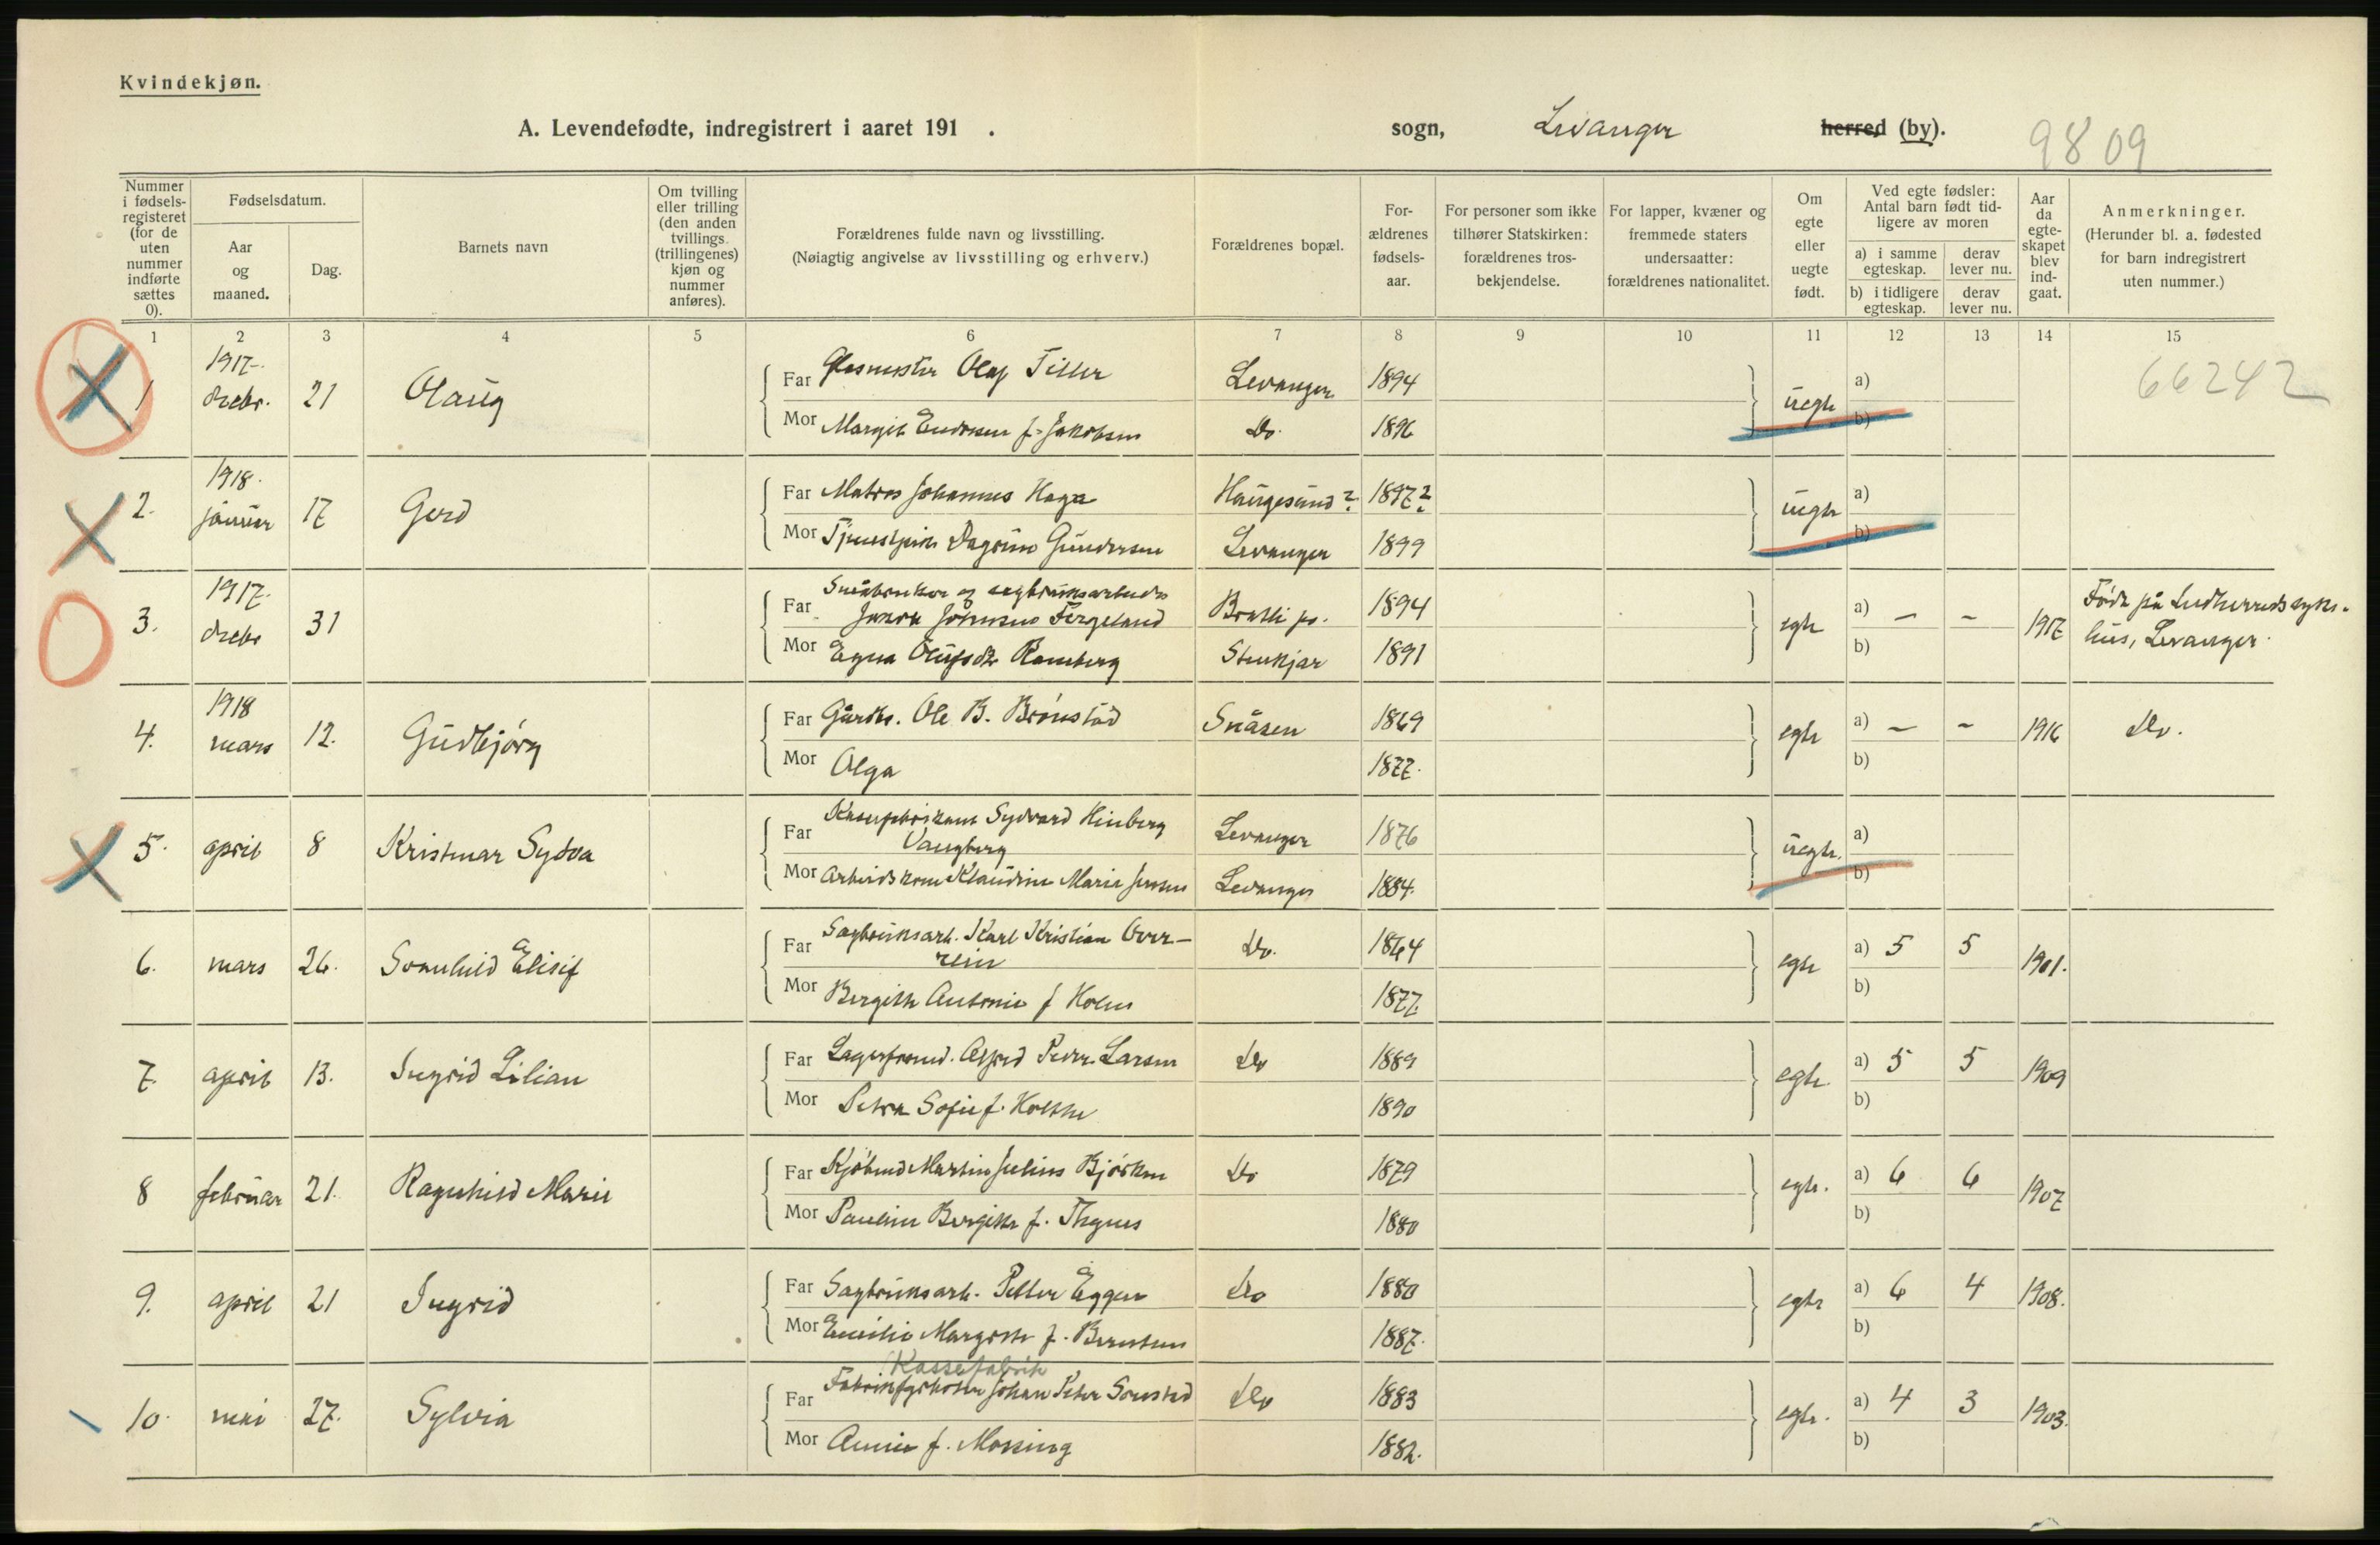 Kvindekjøn.
A. Levendefødte, indregistrert i aaret 191 . sogn, Levanger herred (by). 9809
Nummer i fødselsregisteret (for de uten nummer indførte sættes 0).
Fødselsdatum.
Aar og maaned.
Dag.
Barnets navn
Om tvilling eller trilling (den anden tvillings (trillingenes) kjøn og nummer anføres).
Forældrenes fulde navn og livsstilling.
(Nøiagtig angivelse av livsstilling og erhverv.)
Forældrenes bopæl.
For-ældrenes fødsels-aar.
For personer som ikke tilhører Statskirken: forældrenes tros-bekjendelse.
For lapper, kvæner og fremmede staters undersaatter: forældrenes nationalitet.
Om egte eller uegte født.
Ved egte fødsler: Antal barn født tid-ligere av moren
a) i samme egteskap. derav lever nu.
b) i tidligere egteskap. derav lever nu.
Aar da egte-skapet blev ind-gaat.
Anmerkninger.
(Herunder bl. a. fødested for barn indregistrert uten nummer.)
1 2 3 4 5 6 7 8 9 10 11 12 13 14 15
1 1917. dzebr. 21 Olaug Far Olaf Tiller Levanger 1894 uegte a) 66242
Mor Margit f. Jakobsen Do. 1896 b)
2. 1918. januar 17 Gerd Far Matros Johannes Haga Haugesund? 1897? uegte a)
Mor Dagrun Gundersen Levanger 1899 b)
3. 1917. dzebr 31 Far og sagbruksarbeider
Johnsen Fergeland 1894 egte a) – – 1917 Født på Innherreds syke-
Mor Egna Olufsdtr Ramberg Stenkjær 1891 b) hus, Levanger.
4. 1918 mars 12. Gudbjørg Far Gårdbr. Ole B. Brønstad Snåsen 1869 egte a) – – 1916 Do.
Mor Olga 1877. b)
5. april 8 Kristmar Sydva Far Sydvard Hinberg
Vangberg Levanger 1876 uegte. a)
Mor Klaudine Marie Jensen Levanger 1884. b)
6. mars 26. Elisif Far Sagbruksarb. Karl Kristian Over-
rein Do. 1864 egte a) 5 5 1901.
Mor Bergitte Antonie f Holm 1877. b)
7. april 13. Ingrid Lilian Far Lagerformd. Alfred Peder Larsen Do 1889 egte. a) 5 5 1909
Mor Petra Sofie f. Holthe 1890 b)
8 februar 21. Ragnhild Marie Far Kjøbmd Martin Julius Bjørken Do 1879 egte. a) 6 6 1907
Mor Pauline Bergitte f. Thynes 1880 b)
9. april 21 Ingrid Far Sagbruksarb. Petter Eggen Do 1880 egte a) 6 4 1908.
Mor Emilie Margrete f. Berntsen 1887. b)
Kassefabrik
10. mai 27. Sylvia Far Johan Peter Do 1883 egte. a) 4 3 1903.
Mor Annie f. Mossing 1882. b)